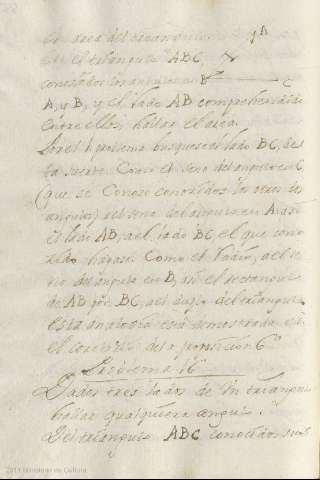 En el triangulo ABC,
conocidos los angulos
A, y B, y el lado AB comprehendido
entre ellos, hallar el area.
problema busquese el lado BC, de es
ta suerte. Como el seno del angulo C,
(que se conoce conocidos los otros dos
angulos) al seno del angulo A: assi
el lado AB, a el lado BC, el que cono
cido hagase. Como el Radio, a el se
no del angulo B, assi el rectangulo
de AB por BC, a el duplo del triangulo
esta analogia está demostrada en
el corolario de la proposicion 6ª
Problema 16º
Dados tres lados de un triangulo
hallar qualquiera angulo.
Del triangulo ABC conocidos sus
A
B
C
2011 Ministerio de Cultura